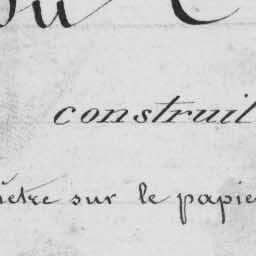 construit
mètre sur le papie